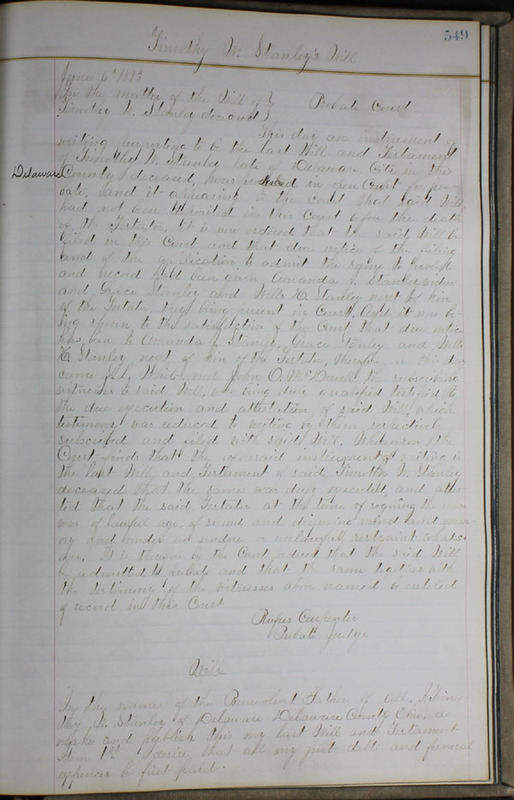 549
Timothy W. Stanley's Will
June 6" 1883
In the matter of the Will of } Probate Court
Timothy W. Stanley deceased }
This day an instrument of
writing purporting to be the last Will and Testament
of Timothy W. Stanley late of Delaware City in this
Delaware
County deceased, was produced in open Court for pro
bate, and it appearing to the Court that said Will
had not been deposited in this Court before the death
of the Testator, it is now ordered that the said Will be
filed in this Court and that due notice of the filing
and of the application to admit the same to Probate
and record has been given Amanda J. Stanley widow
and Grace Stanley and Wells K. Stanley next of kin
of the Testator, they being present in Court. And it now be-
ing shown to the satisfaction of the Court that due notice
has been to Amanda J. Stanley, Grace Stanley and Wells
K. Stanley next of kin of the Testator, therefore on this day
came White and John O. McDowell the subscribing
witnesses to said Will, who being duly qualified testified to
the due execution and attestation of said Will, which
testimony was reduced to writing by them respectively
subscribed and filed with said Will. Whereupon the
Court finds that the aforesaid instrument of writing is
the last Will and Testament of said Timothy W. Stanley
deceased that the same was duly executed and attes
ted that the said Testator at the time of signing the same
was of lawful age, of sound and disposing mind and mem
ory and under not under unlawful restraint whatso
ever. It is therefore by the Court ordered that the said Will
be admitted to probate and that the same together with
the testimony of the witnesses above named be entered
of record in this Court
Rufus Carpenter
Probate Judge
Will
In the name of the Benevolent Father of all. I Timo
thy W. Stanley of Delaware Delaware County Ohio do
make and publish this my last Will and Testament
Item 1st I desire that all my just debts and funeral
expences be first paid.